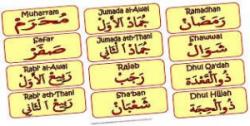 Muharram
مُحَرَّم
Safar
صَفَر
Rabi' al-Awal
رَبِيعُ الأَوَّل
Rabi' ath-Thani
رَبِيعُ الثَّانِي
Jumada al-Awal
جُمَادُ الأَوَّل
Jumada ath-Thani
جُمَادُ الثَّانِي
Rajab
رَجَب
Sha'ban
شَعْبَان
Ramadhan
رَمَضَان
Shauwal
شَوَّال
Dhul Qa'dah
ذُو الْقَعْدَة
Dhul Hijjah
ذُو الْحِجَّة